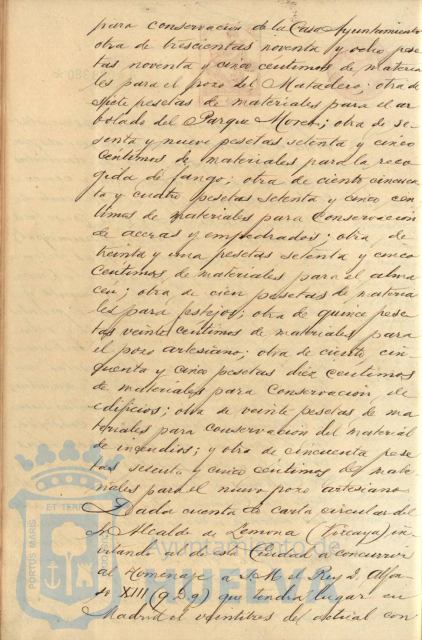 para conservación de la Casa Ayuntamiento
otra de trescientas noventa y ocho pese
tas noventa y cinco centimos de materia
les para el pozo del Matadero; otra de
siete pesetas de materiales para el ar
bolado del Parque Moret; otra de se
senta y nueve pesetas setenta y cinco
centimos de materiales para la reco
gida de fango; otra de ciento cincuen
ta y cuatro pesetas setenta y cinco cen
timos de materiales para conservacion
de aceras y empedrados; otra de
treinta y una pesetas setenta y cinco
centimos de materiales para el alma
cen; otra de cien pesetas de materia
les para festejos; otra de quince pese
tas veinte centimos de materiales para
el pozo artesiano; otra de ciento cin
cuenta y cinco pesetas diez centimos
de materiales para conservacion de
edificios; otra de veinte pesetas de ma
teriales para conservacion del material
de incendios; y otra de cincuenta pese
tas sesenta y cinco centimos de mate
riales para el nuevo pozo artesiano
Dada cuenta de carta circular del
Sr Alcalde de Lemona (Vizcaya) in
vitando al de esta Ciudad a concurrir
al Homenaje a S.M. el Rey D. Alfon
so XIII (q D g) que tendrá lugar en
Madrid el veintitres del actual con
Ayuntamiento de
HUELVA
PORTUS MARIS
ET TERRAE